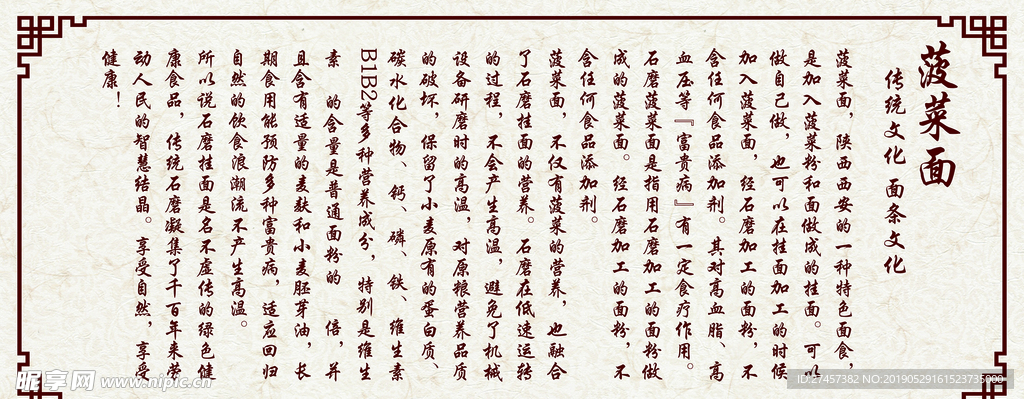 菠菜面
传统文化 面条文化
菠菜面，陕西西安的一种特色面食，
是加入菠菜粉和面做成的挂面。可以
做自己做，也可以在挂面加工的时候
加入菠菜面，经石磨加工的面粉，不
含任何食品添加剂。其对高血脂、高
血压等『富贵病』有一定食疗作用。
石磨菠菜面是指用石磨加工的面粉做
成的菠菜面。经石磨加工的面粉，不
含任何食品添加剂。
菠菜面，不仅有菠菜的营养，也融合
了石磨挂面的营养。石磨在低速运转
的过程，不会产生高温，避免了机械
设备研磨时的高温，对原粮营养品质
的破坏，保留了小麦原有的蛋白质、
碳水化合物、钙、磷、铁、维生素
B1B2等多种营养成分，特别是维生
素 的含量是普通面粉的 倍，并
且含有适量的麦麸和小麦胚芽油，长
期食用能预防多种富贵病，适应回归
自然的饮食浪潮流不产生高温。
所以说石磨挂面是名不虚传的绿色健
康食品，传统石磨凝集了千百年来劳
动人民的智慧结晶。享受自然，享受
健康！
昵享网 www.nipic.cn
ID:27457382 NO:20190529161523735000